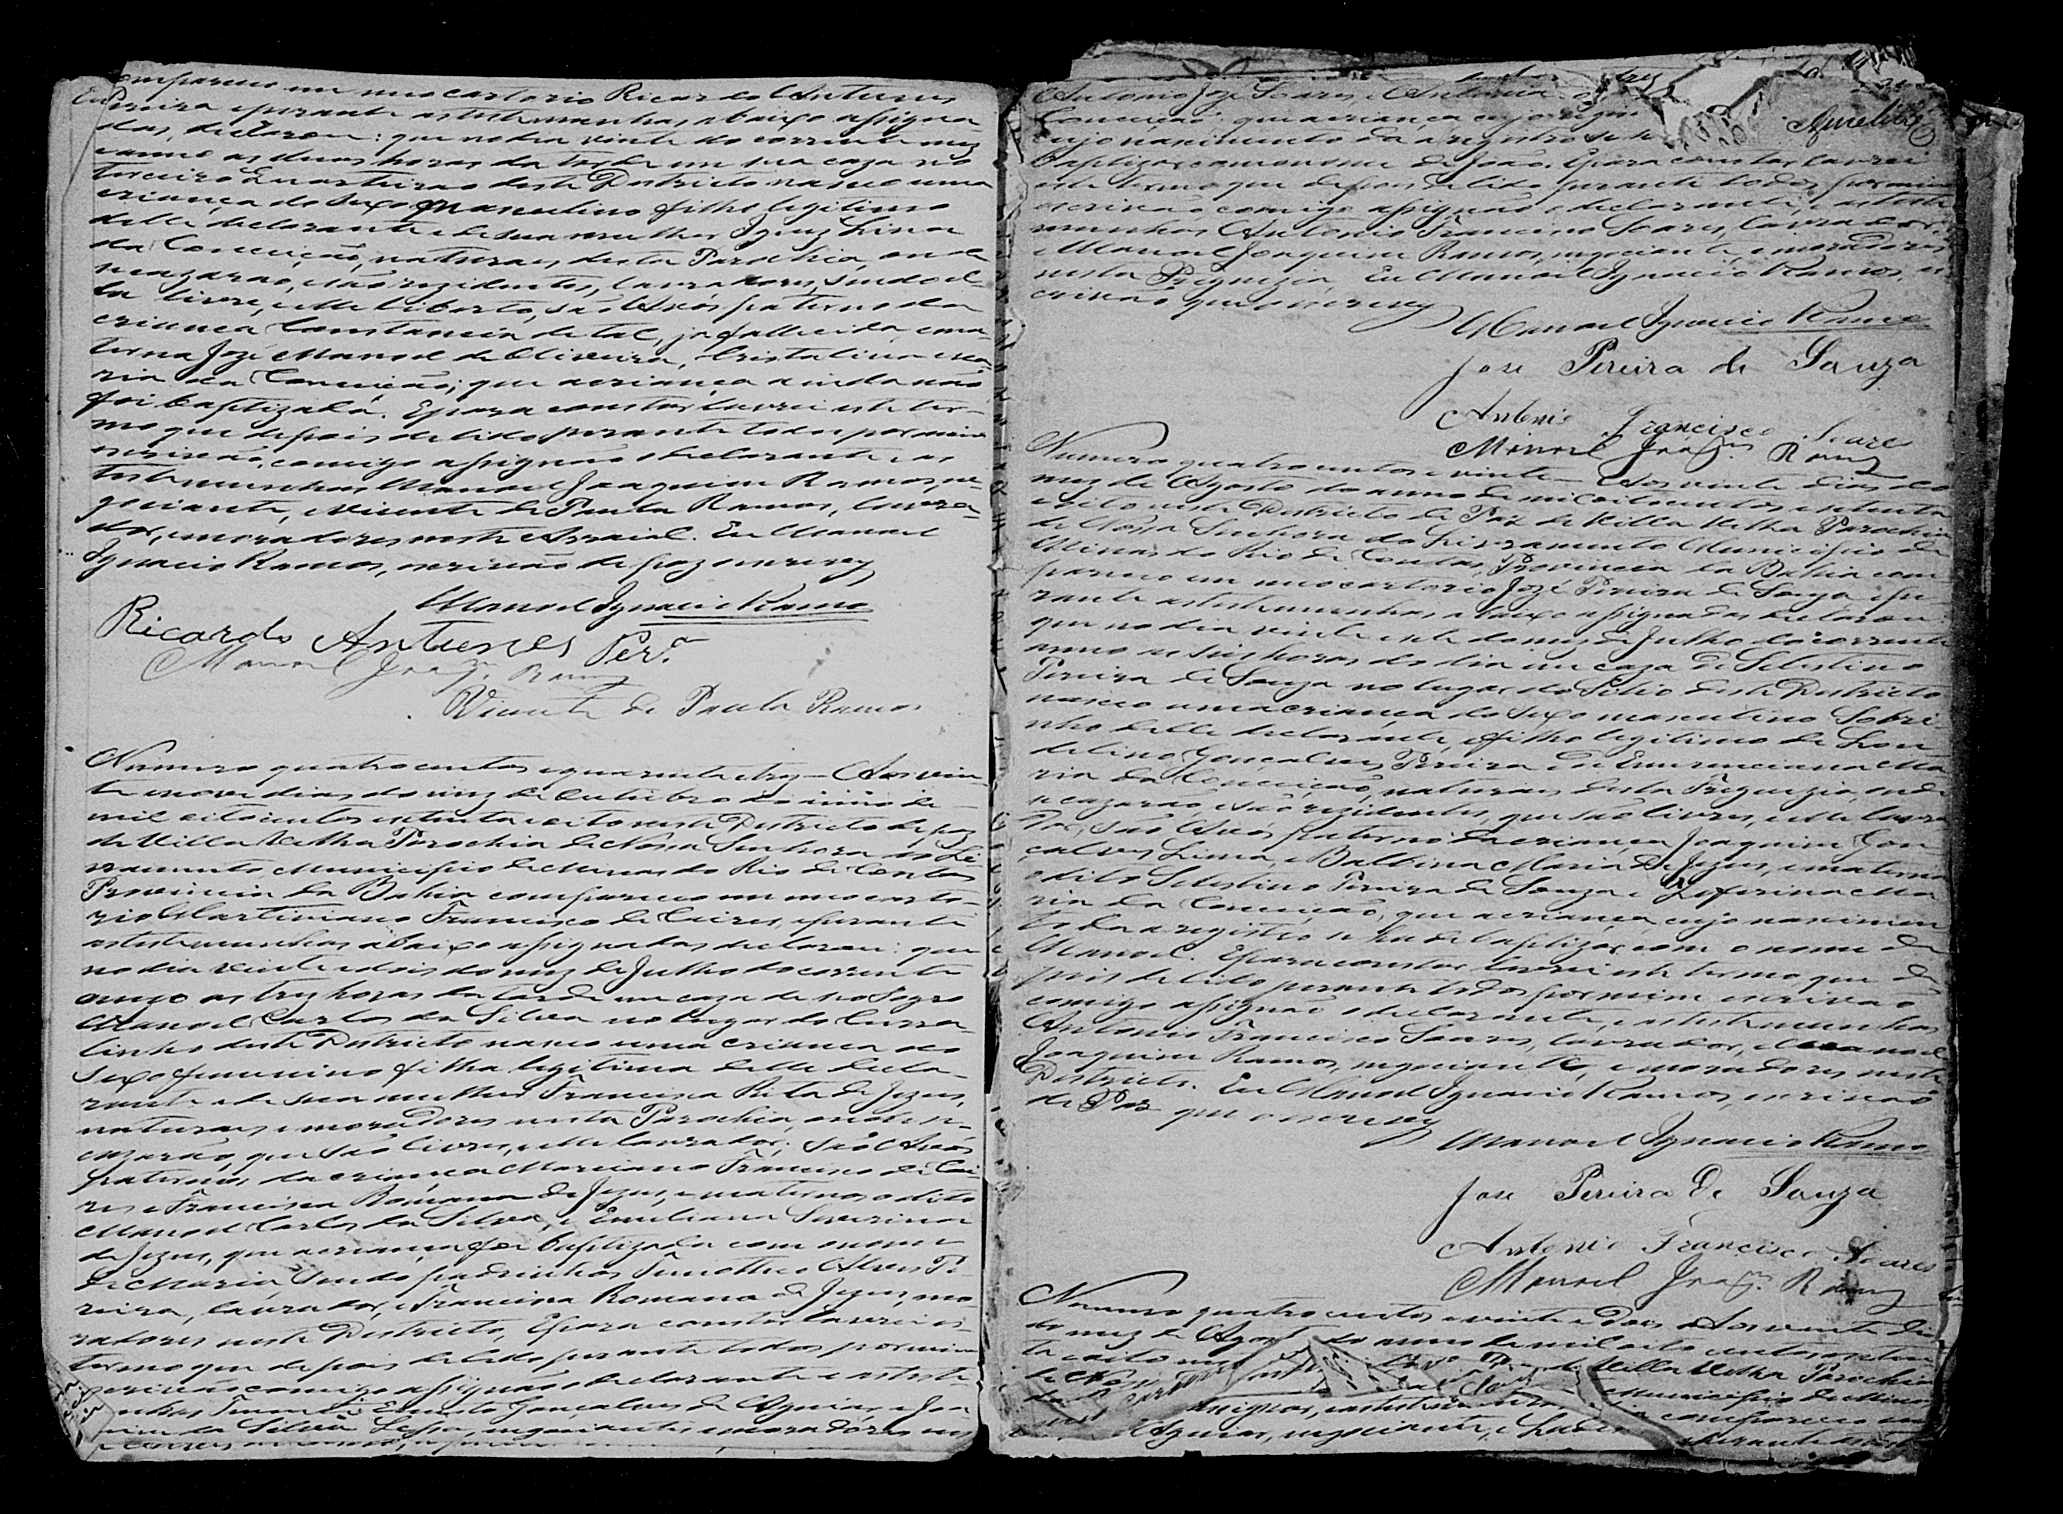 compareceu em meo cartorio Ricardo Antunes
Pereira e perante as testemunhas abaixo assigna-
das, declarou: que no dia vinte do corrente mez
e anno as duas horas da tarde em sua caza no
terceiro Quarteirão deste Districto nasceo uma
criança do sexo Masculino filho legitimo
delle declarante e de sua mulher Ignez Lina
da Conceição, naturaes desta Parochia, onde
se cazarão, e são rezidentes, lavradores, sendo el-
la livre, e elle liberto, são Avós paterno da
criança Constancia de tal, ja fallecida, e ma-
terna José Manoel de Oliveira, Cristalina
ria da Conceição; que a criança ainda não
foi baptizada. E para constar lavrei este ter-
mo que depois de lido perante todos por mim
escrivão, comigo assignão o declarante e as
testemunhas Manoel Joaquim Ramos, ne-
gociante, e Vicente de Paula Ramos, lavra-
dor, e moradores neste Arraial. Eu Manoel
Ignacio Ramos, escrivão de paz escrevy
Manoel Ignacio Ramos
Ricardo Antunes Per.ª
Manoel Joaq.m Ramos
Vicente de Paula Ramos
Numero quatrocentos e quarenta e trez — Aos vin-
te e nove dias do mez de Outubro do anno de
mil oitocentos e setenta e oito neste Districto de paz
de Villa Velha Parochia de Nossa Senhora do Li-
vramento Municipio de Minas do Rio de Contas
Provincia da Bahia compareceo em meo carto-
rio Martiniano Francisco de Caires, e perante
as testemunhas abaixo assignadas declarou: que
no dia vinte e dois do mez de Julho do corrente
anno as trez horas da tarde em caza de seo Sogro
Manoel Carlos da Silva no lugar do Curra-
linho deste Districto nasceo uma criança do
sexo femenino filha legitima delle decla-
rante e de sua mulher Francisca Rita de Jezus,
naturaes e moradores nesta Parochia, onde se
cazarão, que são livres, e elle lavrador; são Avós
paternos da criança Marciano Francisco de Cai-
res e Francisca Romana de Jezus, e maternos o dito
Manoel Carlos da Silva, e Emiliana Severina
de Jezus, que a criança foi baptizada com o nome
de Maria, sendo padrinhos Timotheo Alves Pe-
reira, lavrador, e Francisca Romana de Jezus, mo-
radores neste Districto, E para constar lavrei es-
termo que depois de lido perante todos por mim
escrivão comigo assignão o declarante e as teste-
Ernesto Gonçalves de Aguiar, e Joa-
da Silva negociantes e moradores
Antonio Jozé Soares, e Antonia
Conceição que a criança cujo
cujo nascimento da a registro se
baptizar com o nome de João. E para constar lavrei
este termo que depois de lido perante todos por mim
escrivão comigo assignão o declarante, e as teste-
munhas Antonio Francisco Soares, lavrador,
e Manoel Joaquim Ramos, negociante, e moradores
nesta Freguezia. Eu Manoel Ignacio Ramos, es-
crivão que escrevy
Manoel Ignacio Ramos
Jose Pereira de Souza
Antonio Francisco Soares
Manoel Joaq.m Ramos
Numero quatro centos e vinte — Aos vinte dias do
mez de Agosto do anno de mil oitocentos e setenta
e oito neste Districto de Paz de Villa Velha Parochia
de Nossa Senhora do Livramento Municipio de
Minas do Rio de Contas, Provincia da Bahia com-
pareceo em meo cartorio José Pereira de Souza e pe-
rante as testemunhas abaixo assignadas declarou:
que no dia vinte e sete do mez de Julho do corrente
anno as seis horas do dia em caza de Selestino
Pereira de Souza no lugar do Sitio deste Districto
nasceo uma criança do sexo masculino Sobri-
nho delle declarante, e filho legitimo de
delino Gonçalves Pereira e de Emerenciana Ma-
ria da Conceição, naturaes desta Freguezia, onde
se cazarão, e são rezidentes, que são livres, e elle lavra-
dor; são Avós paterno da criança Joaquim Gon-
çalves Lima, e Balbina Maria de Jezus, e materna
o dito Selestino Pereira de Souza e Zeferina Ma-
ria da Conceição, que a criança cujo nascimen-
to da a registro se ha de baptizar com o nome de
Manoel. E para constar lavrei este termo que de-
pois de lido perante todos por mim escrivão
comigo assignão o declarante, e as testemunhas
Antonio Francisco Soares, lavrador, e Manoel
Joaquim Ramos, negociante, e moradores neste
Districto. Eu Manoel Ignacio Ramos, escrivão
de Paz que o escrevy
Manoel Ignacio Ramos
Jose Pereira de Souza
Antonio Francisco Soares
Manoel Joaq.m Ramos
Numero quatro centos e vinte e dois Aos vinte di
do mez de Agosto do anno de mil oito centos e seten
ta e oito Villa Velha Parochia
Municipio de Minas
compareceo
Aguiar, negociante, e perante